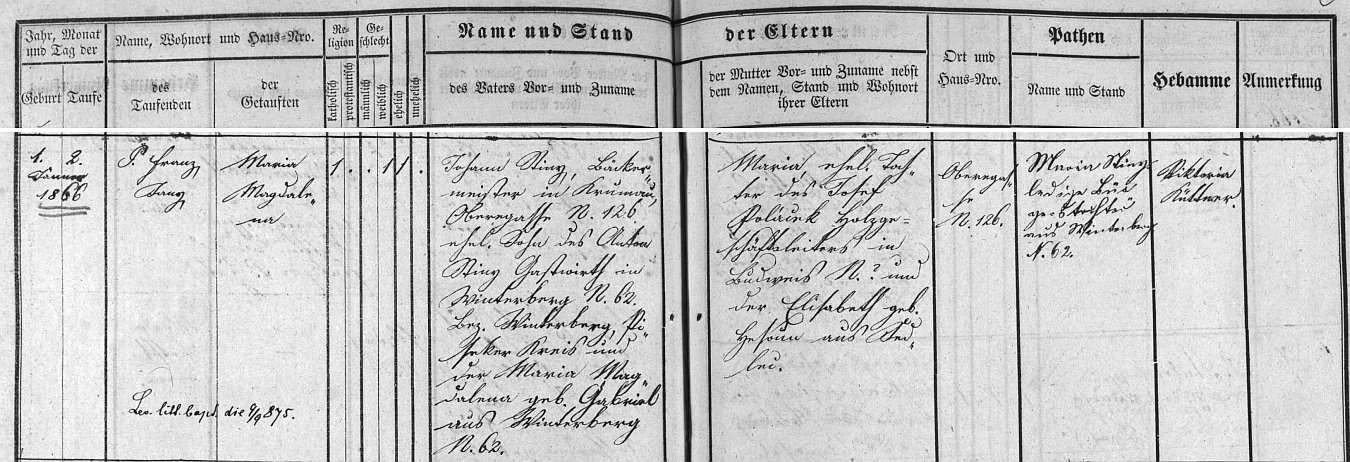 Jahr, Monat
und Tag der
Geburt
Taufe
Name, Wohnort und Haus-Nro.
des
Taufenden
der
Getauften
Re-
ligion
katholisch
protestantisch
Ge-
schlecht
männlich
weiblich
ehelich
unehelich
Name und Stand
der Eltern
des Vaters Vor- und Zuname
der Mutter Vor- und Zuname nebst
dem Namen, Stand und Wohnort
ihrer Eltern
Ort und
Haus-Nro.
Pathen
Name und Stand
Hebamme
Anmerkung
1. 2.
Jänner
1866
P. Franz
Maria
Magdale-
na
1 . . 1 1
Johann Stiny, Bäcker-
meister in Krumau,
Oberegasse N. 126
ehel. Sohn des Anton
Stiny Gastwirth in
Winterberg N. 62.
Bez. Winterberg, Pi-
seker Kreis und
der Maria Mag-
dalena geb. Gabriel
aus Winterberg
N. 62.
Maria, ehel. Toch-
ter des Josef
Polaček Holzge-
schäftsleiters in
Budweis N. ? und
der Elisabeth geb.
aus Sed-
lec.
Oberegas-
se
N. 126.
Maria Stiny
ledige Bür-
gerstochter
aus Winterberg
N. 62.
Viktoria
Küttner.
litt. bapt. die 9/9 875.